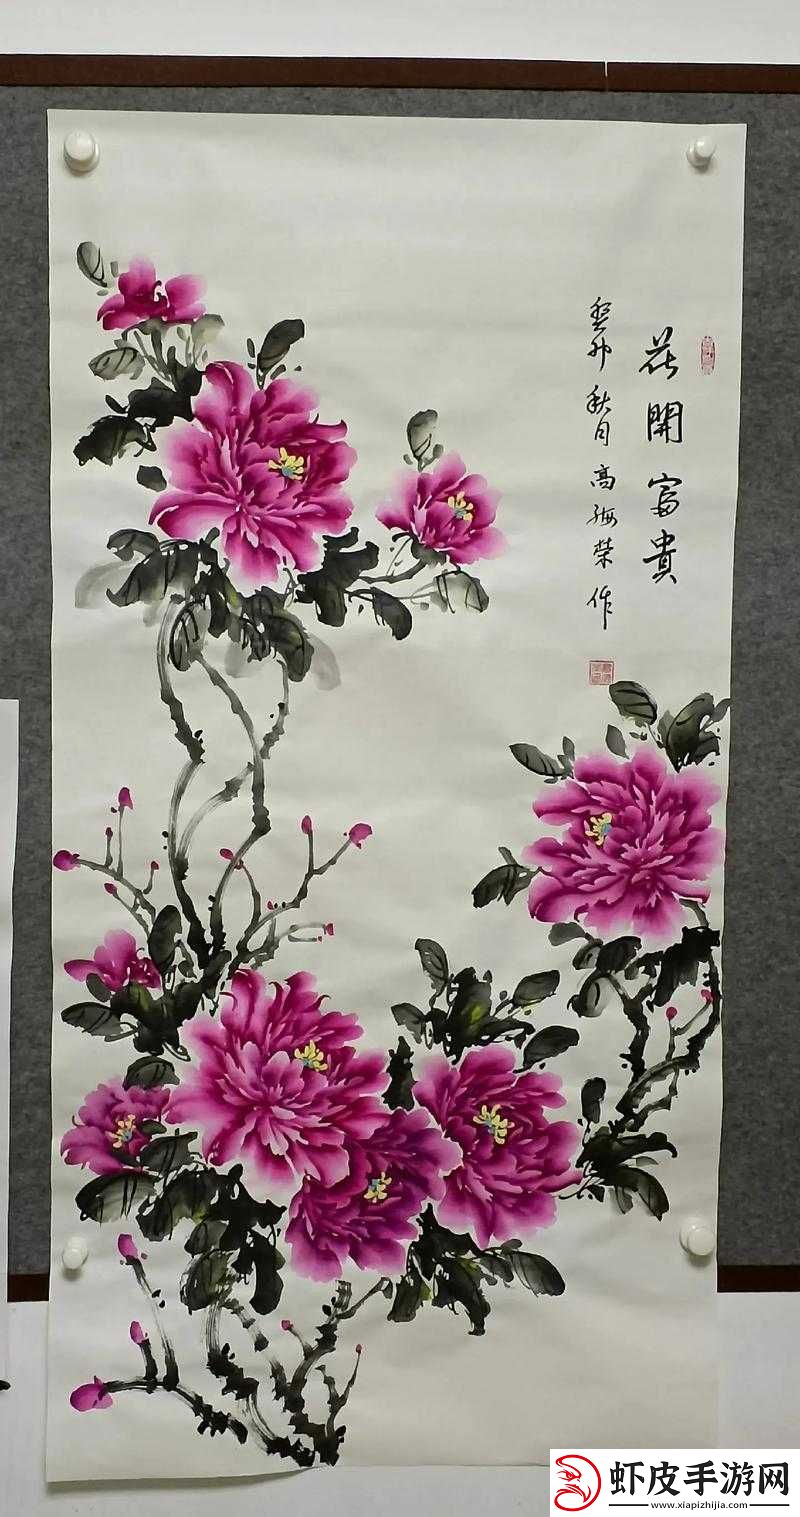 花開富貴
癸卯秋月高海榮作
虾皮手游网
www.xiapizhijia.com